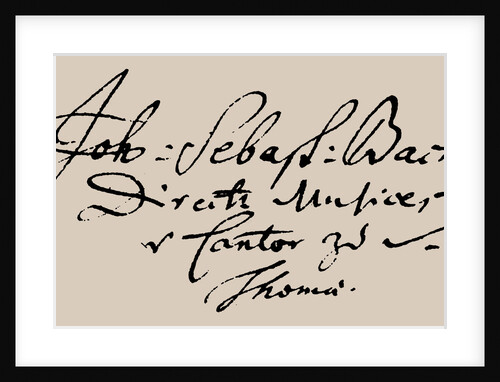 Joh: Sebast: Bac
Direct. Musices,
u Cantor zu
Thomä.